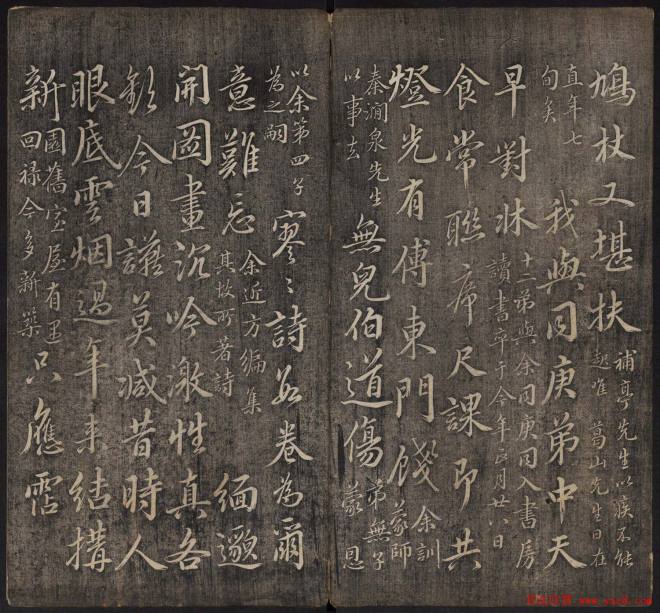 鳩杖又堪扶
補亭先生以疾不能
起唯 葛山先生日在
直年七
旬矣
我與同庚弟中天
早對牀
十二弟與余同庚同入書房
讀書卒于今年 月廿八日
食常聯席尺課即共
燈光有傅東門餞
余訓
蒙師
秦澗泉先生
以事去
無兒伯道傷
弟無子
蒙恩
以余第四子
為之嗣
寥〻詩 卷為爾
意難忘
余近方編集
其故所著詩
緬邈
開圖畫沉吟激性真各
欽今日謹莫減昔時人
眼底雲烟過年来結搆
新
園舊室屋有
回祿今多新築
只應霑